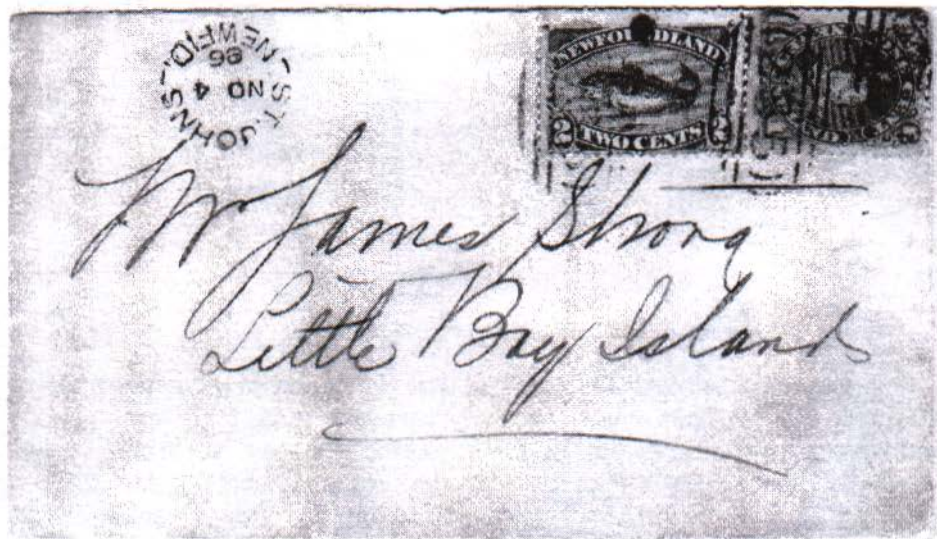 ST. JOHN'S - NEWF'D.
NO 4
96
NEWFOUNDLAND
2 TWO CENTS 2
Mr James Strong
Little Bay Island